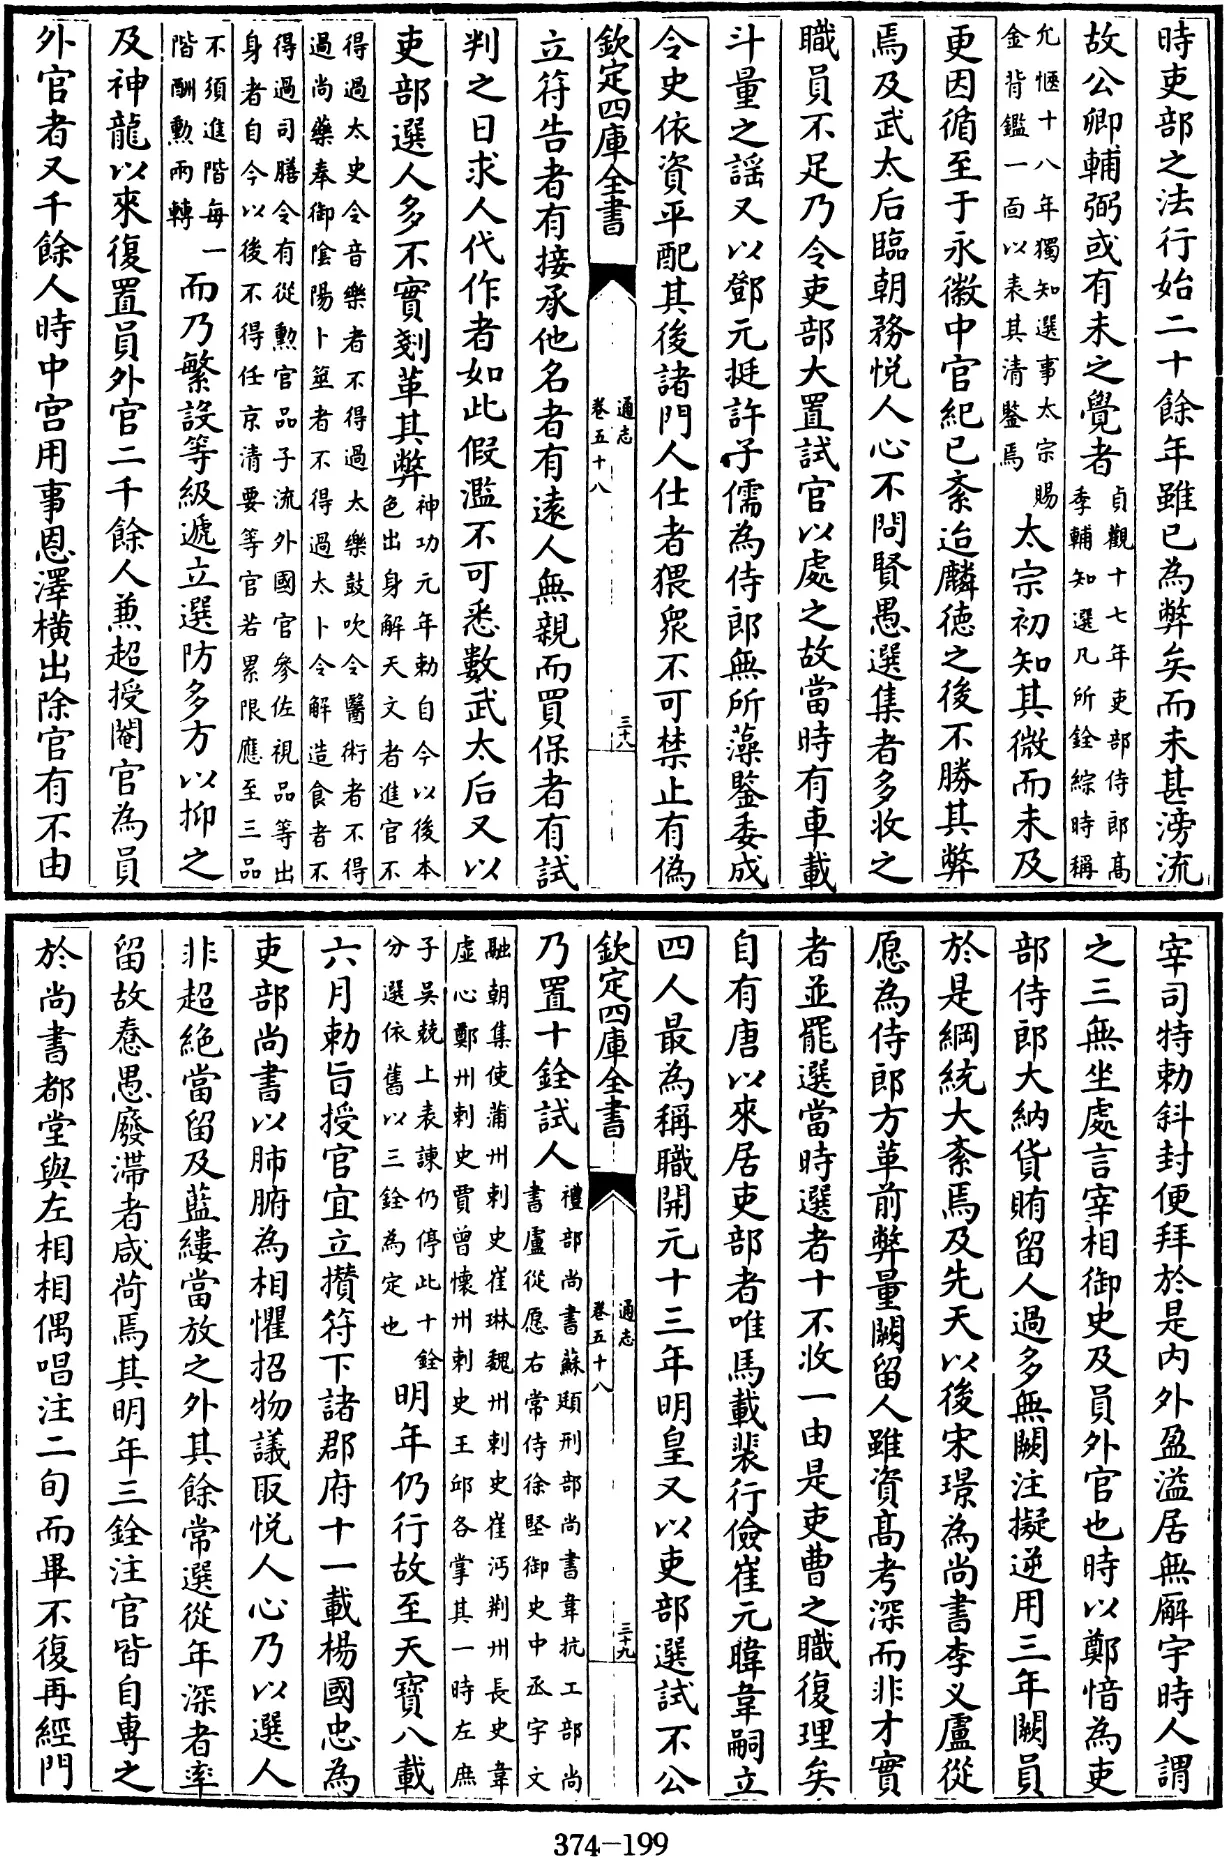 時吏部之法行始二十餘年雖已為弊矣而未甚滂流
故公卿輔弼或有未之覺者貞觀十七年吏部侍郎高季輔知選凡所銓綜時稱
允愜十八年獨知選事太宗賜金背鑑一面以表其清鑒焉太宗初知其微而未及
更因循至于永徽中官紀已紊迨麟德之後不勝其弊
焉及武太后臨朝務悅人心不問賢愚選集者多收之
職員不足乃令吏部大置試官以處之故當時有車載
斗量之謡又以鄧元挺許子儒為侍郎無所藻鑒委成
令史依資平配其後諸門人仕者猥衆不可禁止有偽
欽定四庫全書
通志
卷五十八
三十八
立符告者有接承他名者有遠人無親而買保者有試
判之日求人代作者如此假濫不可悉數武太后又以
吏部選人多不實剗革其弊神功元年勅自今以後本色出身解天文者進官不
得過太史令音樂者不得過太樂鼓吹令醫術者不得過尚藥奉御陰陽卜筮者不得過太卜令解造食者不
得過司膳令有從勲官品子流外國官參佐視品等出身者自今以後不得任京清要等官若累限應至三品
不須進階每一階酬勲兩轉而乃繁設等級遞立選防多方以抑之
及神龍以來復置員外官二千餘人兼超授閹官為員
外官者又千餘人時中宫用事恩澤横出除官有不由
宰司特勅斜封便拜於是内外盈溢居無廨宇時人謂
之三無坐處言宰相御史及員外官也時以鄭愔為吏
部侍郎大納貨賄留人過多無闕注擬逆用三年闕員
於是綱統大紊焉及先天以後宋璟為尚書李乂盧從
愿為侍郎方革前弊量闕留人雖資高考深而非才實
者並罷選當時選者十不收一由是吏曹之職復理矣
自有唐以來居吏部者唯馬載裴行儉崔元暐韋嗣立
四人最為稱職開元十三年明皇又以吏部選試不公
欽定四庫全書
通志
卷五十八
三十九
乃置十銓試人禮部尚書蘇頲刑部尚書韋抗工部尚書盧從愿右常侍徐堅御史中丞宇文
融朝集使蒲州刺史崔琳魏州刺史崔沔荆州長史韋虛心鄭州刺史賈曾懷州刺史王邱各掌其一時左庶
子吳兢上表諫仍停此十銓分選依舊以三銓為定也明年仍行故至天寶八載
六月勅旨授官宜立攢符下諸郡府十一載楊國忠為
吏部尚書以肺腑為相懼招物議取悅人心乃以選人
非超絶當留及藍縷當放之外其餘常選從年深者率
留故憃愚廢滯者咸荷焉其明年三銓注官皆自專之
於尚書都堂與左相相偶唱注二旬而畢不復再經門
374-199